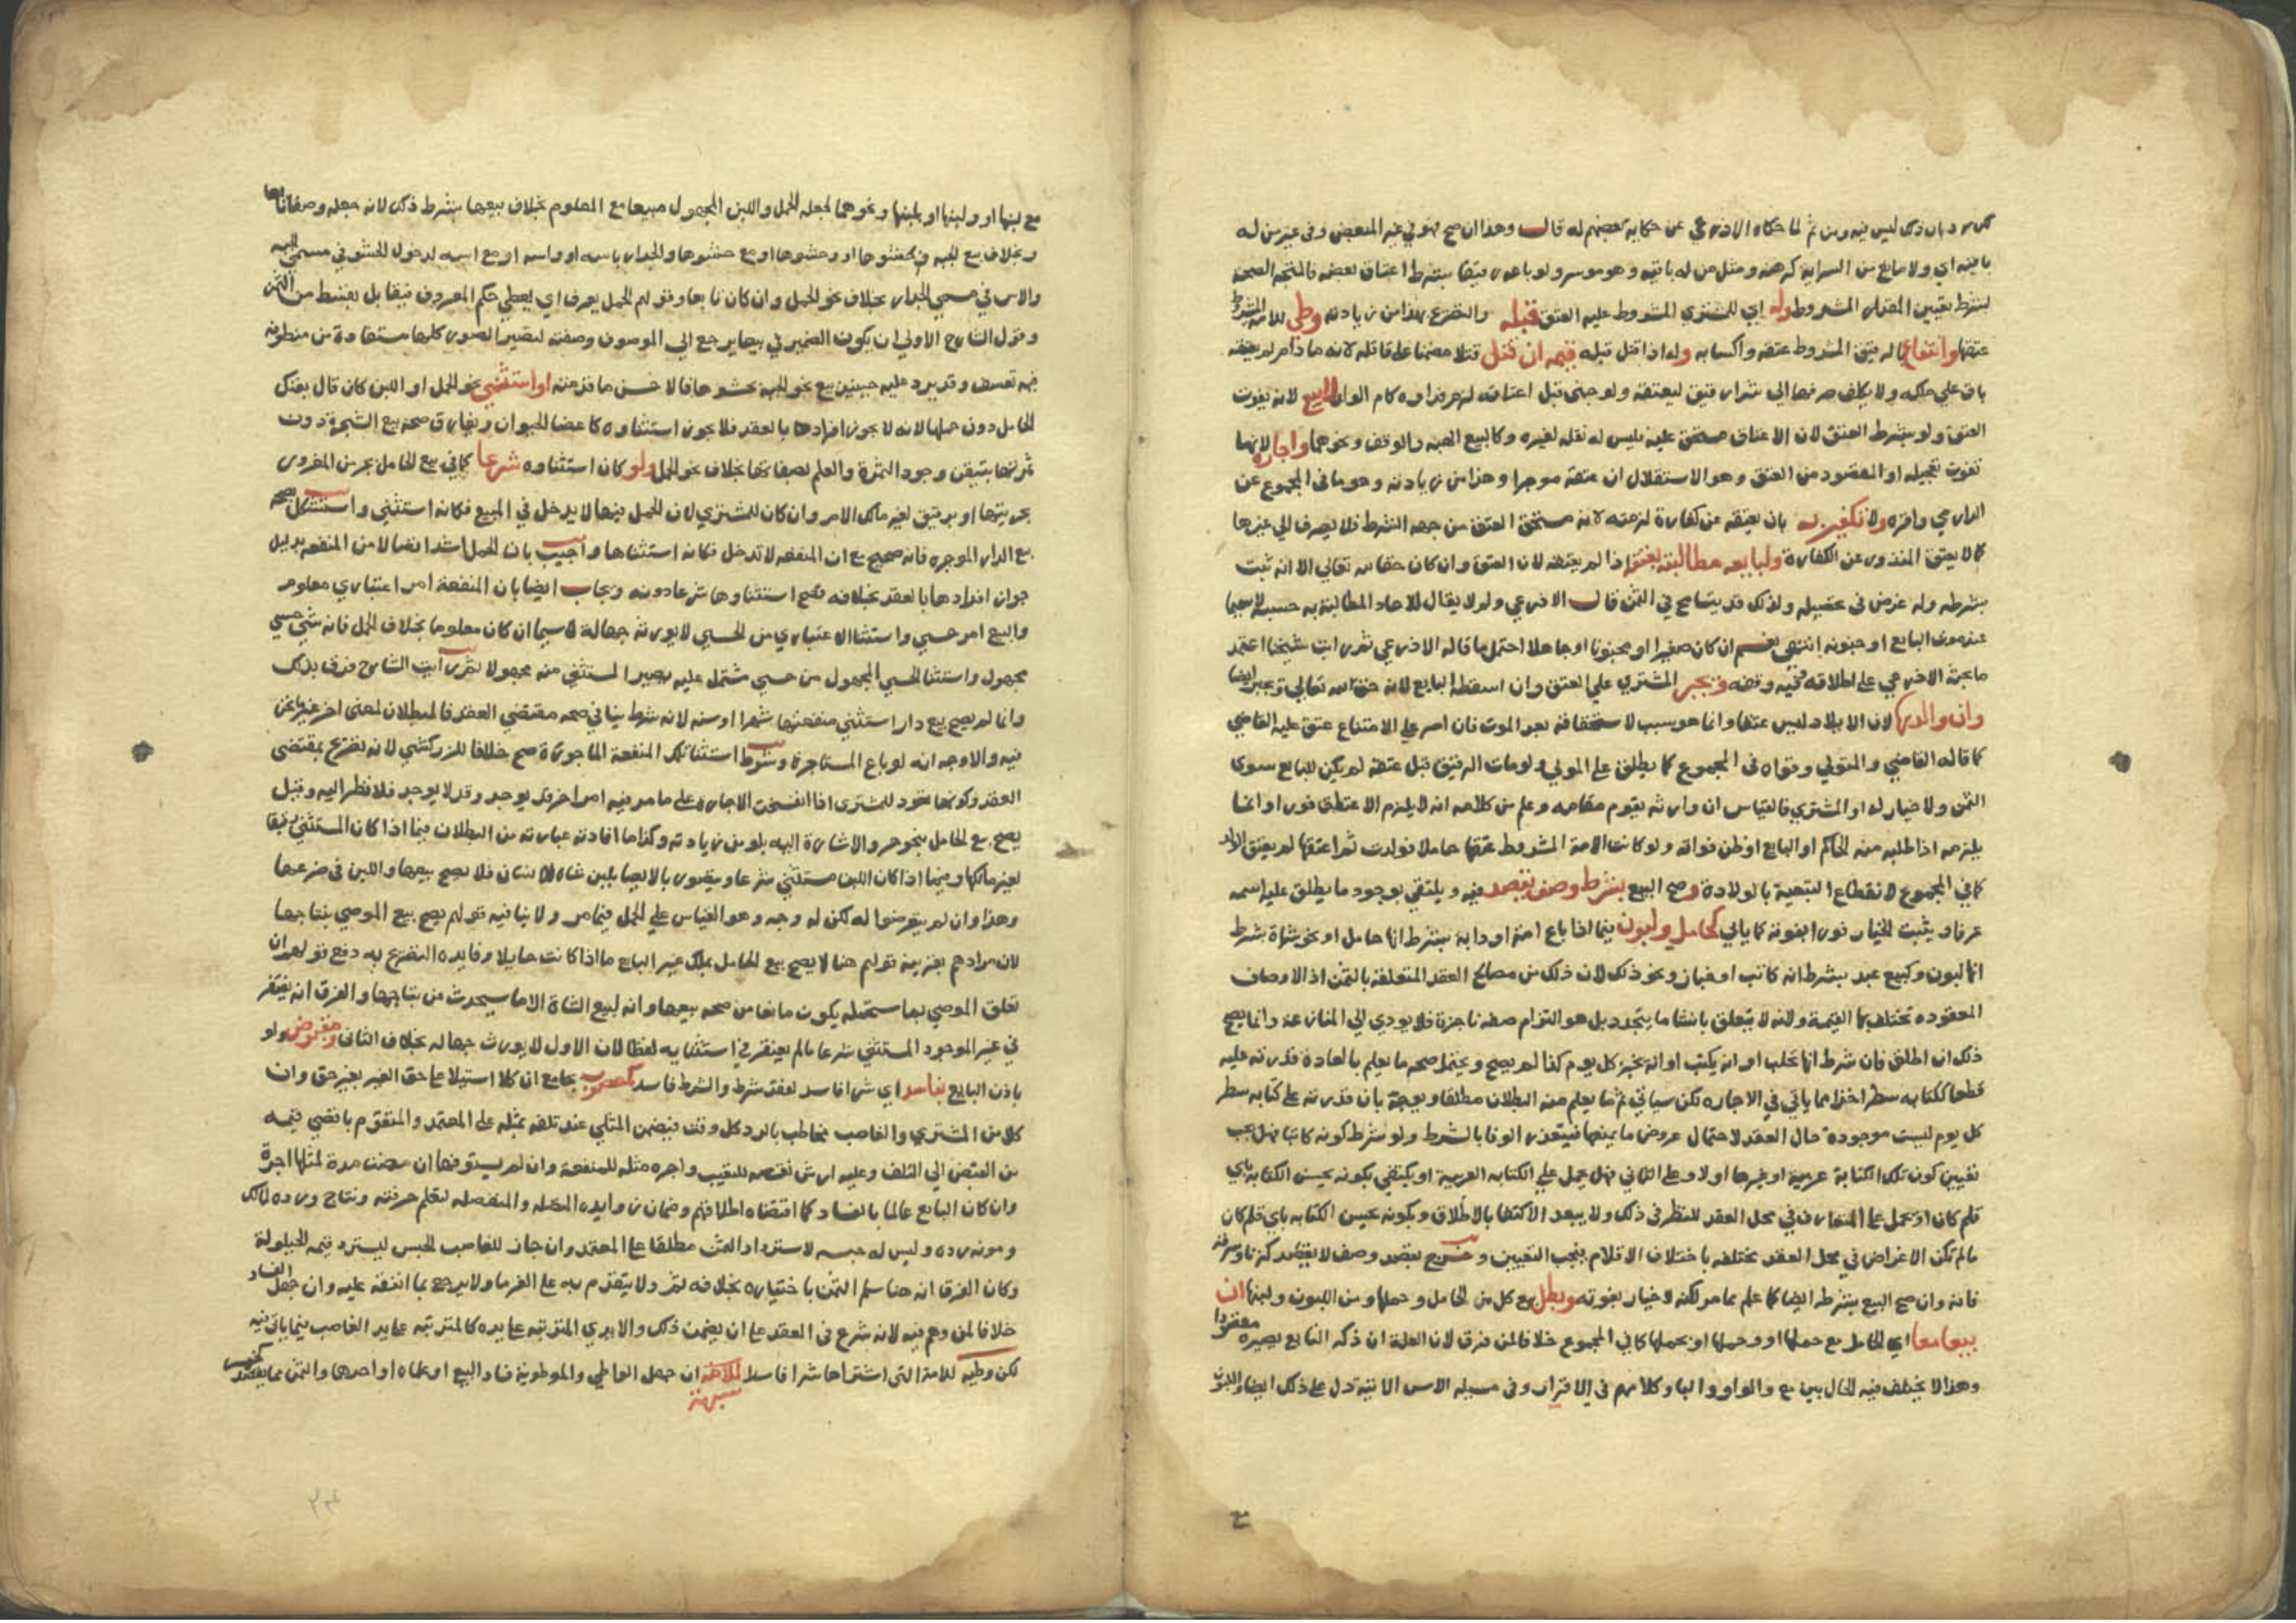 باقيه اي ولا مانع من السراية كرهنه ومثل من له باقيه وهو موسر ولو باعه رقيقا بشرط اعتاق بعضه فالمتجه الصحة
بشرط تعيين المقدار المشروط وله اي للمشتري المشروط عليه العتق قبله والتفريع بهذا من زيادته وطي للامة المشروط
عتقها وانتفاع بالرقيق المشروط عتقه واكسابه وله اذا قتل قبله قيمه ان قتل قتلا مضمنا على قاتله لانه ما دام لم يعتقه
باق على ملكه ولا يكلف صرفها الى شراء رقيق ليعتقه ولو جنى قبل اعتاقه لزمه فداوه كام الولد لا بيع لانه يفوت
العتق ولو بشرط العتق لان الاعتاق مستحق عليه فليس له نقله لغيره وكالبيع الهبه والوقف ونحوهما واجارة لانها
تفوت تعجيله او المقصود من العتق وهو الاستقلال ان عتقه موجرا وهذا من زيادته وهو ما في المجموع عن
الدارمي واقره ولا تكفير به بان يعتقه عن كفارة لزمته لانه مستحق العتق من جهة الشرط فلا يصرف الى غيرها
كما لا يعتق المنذور عن الكفارة ولبايعه مطالبته بعتق اذا لم يعتقه لان العتق وان كان حقا لله تعالى الا انه ثبت
بشرطه وله غرض في تحصيله ولذلك قد يتسامح في الثمن قال الاذرعي ولم لا يقال للاحاد المطالبة به حسبة لا سيما
عند موت البايع او جنونه انتهى نعم ان كان صغيرا او مجنونا او جاهلا احتمل ما قاله الاذرعي ثم رايت شيخنا اعتمد
ما بحثه الاذرعي على اطلاقه وفيه وقفه ويجبر المشتري على العتق وان اسقطه البايع لانه حق الله تعالى ويجبر ايضا
وان اولدها لان الايلاد ليس عتقا وانما هو سبب لاستحقاقه بعد الموت فان اصر على الامتناع عتق عليه القاضي
كما قاله القاضي والمتولي وقواه في المجموع كما يطلق على المولي ولو مات الرقيق قبل عتقه لم يكن للبايع سوى
الثمن ولا خيار له او المشتري فالقياس ان وارثه يقوم مقامه وعلم من كلامه انه لا يلزم الاعتاق فورا وانما
يلزمه اذا طلبه منه الحاكم او البايع او ظن فواته ولو كانت الامة المشروط عتقها حاملا فولدت ثم اعتقها لم يعتق الولد
كما في المجموع لانقطاع التبعية بالولادة وصح البيع بشرط وصف يقصد فيه ويكتفي بوجود ما يطلق عليه اسمه
عرفا ويثبت الخيار فورا بفوته كما ياتي كحامل ولبون فيما اذا باع امة او دابة بشرط انها حامل او نحو شاة بشرط
انها لبون وكبيع عبد بشرط انه كاتب او خباز ونحو ذلك لان ذلك من مصالح العقد المتعلقة بالثمن اذ الاوصاف
المعقوده تختلف بها القيمة ولانه لا يتعلق بانشا ما يتجدد بل هو التزام صفة ناجزة فلا يودي الى المنازعة وانما يصح
ذلك ان اطلق فان شرط انها تحلب او انه يكتب او انه يخبز كل يوم كذا لم يصح ويحتمل صحه ما يعلم بالعادة قدرته عليه
قطعا ككتابه سطر اخذا مما ياتي في الاجاره لكن سياتي ثم ما يعلم منه البطلان مطلقا ويوجه بان قدرته على كتابه سطر
كل يوم ليست موجودة حال العقد لاحتمال عروض ما يمنعها فيتعذر الوفا بالشرط ولو شرط كونه كاتبا فهل يجب
تعيين كون تلك الكتابة عربية او غيرها او لا وعلى الثاني فهل يحمل على الكتابه العربية او يكتفي بكونه يحسن الكتابة باي
قلم كان او يحمل على المتعارف في محل العقد للنظر في ذلك ولا يبعد الاكتفا بالاطلاق وبكونه يحسن الكتابه باي قلم كان
ما لم تكن الاغراض في محل العقد مختلفه باختلاف الاقلام فيجب التعيين وخرج بيقصد وصف لا يقصد كزنا وسرقة
فانه وان صح البيع بشرطه ايضا كما علم مما مر لكنه لا خيار بفوته وبطل بيع كل من الحامل وحملها ومن اللبون ولبنها ان
بيعا معا اي الحامل مع حملها او وحملها او بحملها كما في المجموع خلافا لمن فرق لان العلة ان ذكر التابع يصيره مقصودا
وهذا لا يختلف فيه الحال بين مع والواو والبا وكلامهم في الاقرار وفي مسيله الاس الاتية دل على ذلك ايضا واللبون
ع
مع لبنها او ولبنها او بلبنها ونحوهما لجعله الحمل واللبن المجهول مبيعا مع المعلوم بخلاف بيعها بشرط ذلك لانه جعله وصفا تابعا
وبخلاف بيع الجبه بحشوها او وحشوها او مع حشوها والجدار باسه او واسه او مع اسه لدخول الحشو في مسمى الجبه
والاس في مسمى الجدار بخلاف نحو الحمل وان كان تابعا وقولهم الحمل يعرف اي يعطي حكم المعروف فيقابل بقسط من الثمن
وقول الشارح الاولى ان يكون الضمير في بيعا يرجع الى الموصوف وصفته لتصير الصور كلها مستفادة من منطوقه
فيه تعسف وقد يرد عليه حينيذ بيع نحو الجبه بحشوها فالاحسن ما قررته او استثنى نحو الحمل او اللبن كان قال بعتك
الحامل دون حملها لانه لا يجوز افرادها بالعقد فلا يجوز استثناوه كاعضا الحيوان ويفارق صحة بيع الشجرة دون
ثمرتها بتيقن وجود الثمرة والعلم بصفاتها بخلاف نحو الحمل ولو كان استثناوه شرعا كما في بيع الحامل بحر من المغرور
بحريتها او برقيق لغير مالك الامر وان كان للمشتري لان الحمل فيها لا يدخل في المبيع فكانه استثني واستشكل صحة
بيع الدار الموجره فانه صحيح مع ان المنفعه لا تدخل فكانه استثناها واجيب بان الحمل اشد اتصالا من المنفعه بدليل
جواز افرادها بالعقد بخلافه فصح استثناوها شرعا دونه ويجاب ايضا بان المنفعة امر اعتباري معلوم
والبيع امر حسي واستثنا الاعتباري من الحسي لا يورثه جهالة لا سيما ان كان معلوما بخلاف الحمل فانه شي حسي
مجهول واستثنا الحسي المجهول من حسي مشتمل عليه يصير المستثنى منه مجهولا ثم رايت الشارح فرق بذلك
وانما لم يصح بيع دار استثنى منفعتها شهرا او سنه لانه شرط ينافي صحه مقتضى العقد فالبطلان لمعنى اخر غير ما نحن
فيه والاوجه انه لو باع المستاجرة وشرط استثنا تلك المنفعة الماجورة صح خلافا للزركشي لانه تصريح بمقتضى
العقد وكونها تعود للمشتري اذا انفسخت الاجارة على ما مر فيه امر اخر قد يوجد وقد لا يوجد فلا نظر اليه وقيل
يصح بيع الحامل بنحو حر والاشارة اليه بلو من زيادته وكذا ما افادته عبارته من البطلان فيما اذا كان المستثنى رقيقا
لغير مالكها وفيما اذا كان اللبن مستثنى شرعا ويتصور بالايصا بلبن شاه لانسان فلا يصح بيعها واللبن في ضرعها
وهذا وان لم يتعرضوا له لكن له وجه وهو القياس على الحمل فيما مر ولا ينافيه قولهم يصح بيع الموصي بنتاجها
لان مرادهم بقرينة قولهم هنا لا يصح بيع الحامل بملك غير البايع ما اذا كانت حايلا وفايده التصريح به دفع توهم ان
تعلق الموصي بما ستحمله يكون مانعا من صحه بيعها وانه كبيع الشاة الا ما سيحدث من نتاجها والفرق انه يغتفر
في غير الموجود المستثنى شرعا ما لم يغتفر في استثنايه لفظا لان الاول لا يورث جهاله بخلاف الثاني ومقبوض ولو
باذن البايع بفاسد اي شرا فاسد لفقد شرط والشرط فاسد كمغصوب بجامع ان كلا استيلا على حق الغير بغير حق وان
كلا من المشتري والغاصب مخاطب بالرد كل وقت فيضمن المثلي عند تلفه بمثله على المعتمد والمتقوم باقصى قيمه
من القبض الى التلف وعليه ارش نقصه للتعيب واجره مثله للمنفعة وان لم يستوفها ان مضت مدة لمثلها اجرة
وان كان البايع عالما بالفساد كما اقتضاه اطلاقهم وضمان زوايده المتصله والمنفصله لتعلم حرفته ونتاج ورده لمالك
ومونه رده وليس له حبسه لاسترداد الثمن مطلقا على المعتمد وان جاز للغاصب الحبس ليسترد قيمه الحيلولة
وكان الفرق انه هنا سلم الثمن باختياره بخلافه ثم ولا يتقدم به على الغرما ولا يرجع بما انفقه عليه وان جهل الفساد
خلافا لمن وهم فيه لانه شرع في العقد على ان يضمن ذلك والايدي المترتبه على يده كالمترتبه على يد الغاصب فيما ياتي فيه
لكن وطيه للامة التي اشتراها شرا فاسدا ان جهل الواطي والموطوة فساد البيع او علماه او احدهما والثمن مما يقصد كخمر
شبهة